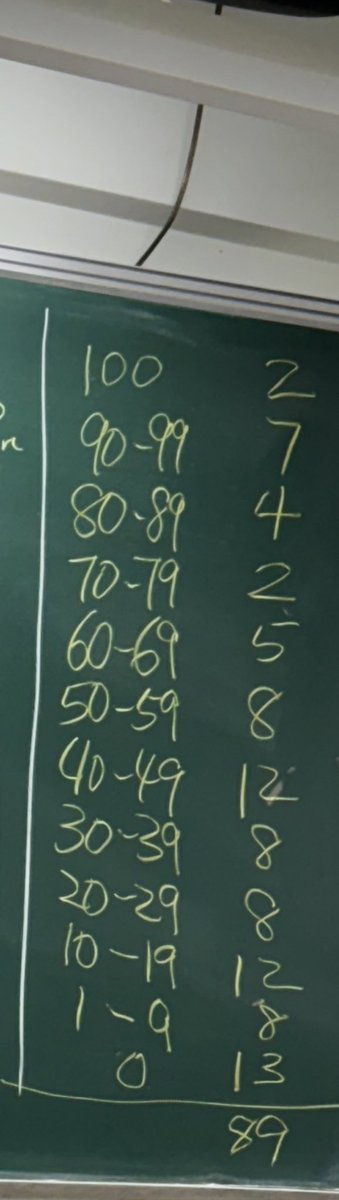 100 2
90-99 7
80-89 4
70-79 2
60-69 5
50-59 8
40-49 12
30-39 8
20-29 8
10-19 12
1-9 8
0 13
89